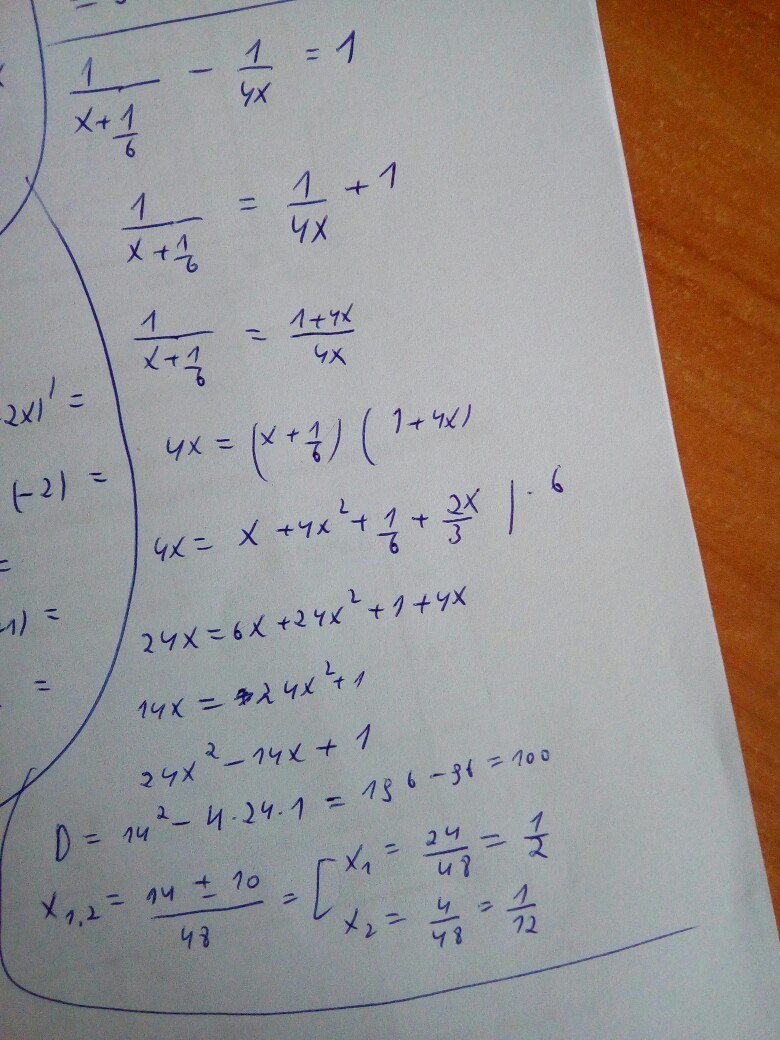 1/(x+1/6) - 1/4x = 1
1/(x+1/6) = 1/4x + 1
1/(x+1/6) = (1+4x)/4x
2x)' =
4x = (x+1/6) (1+4x)
(-2) =
4x = x + 4x² + 1/6 + 2x/3 | · 6
=
1) =
24x = 6x + 24x² + 1 + 4x
=
14x = 24x² + 1
24x² - 14x + 1
D = 14² - 4·24·1 = 196 - 96 = 100
x1,2 = (14 ± 10)/48 = [ x1 = 24/48 = 1/2
x2 = 4/48 = 1/12